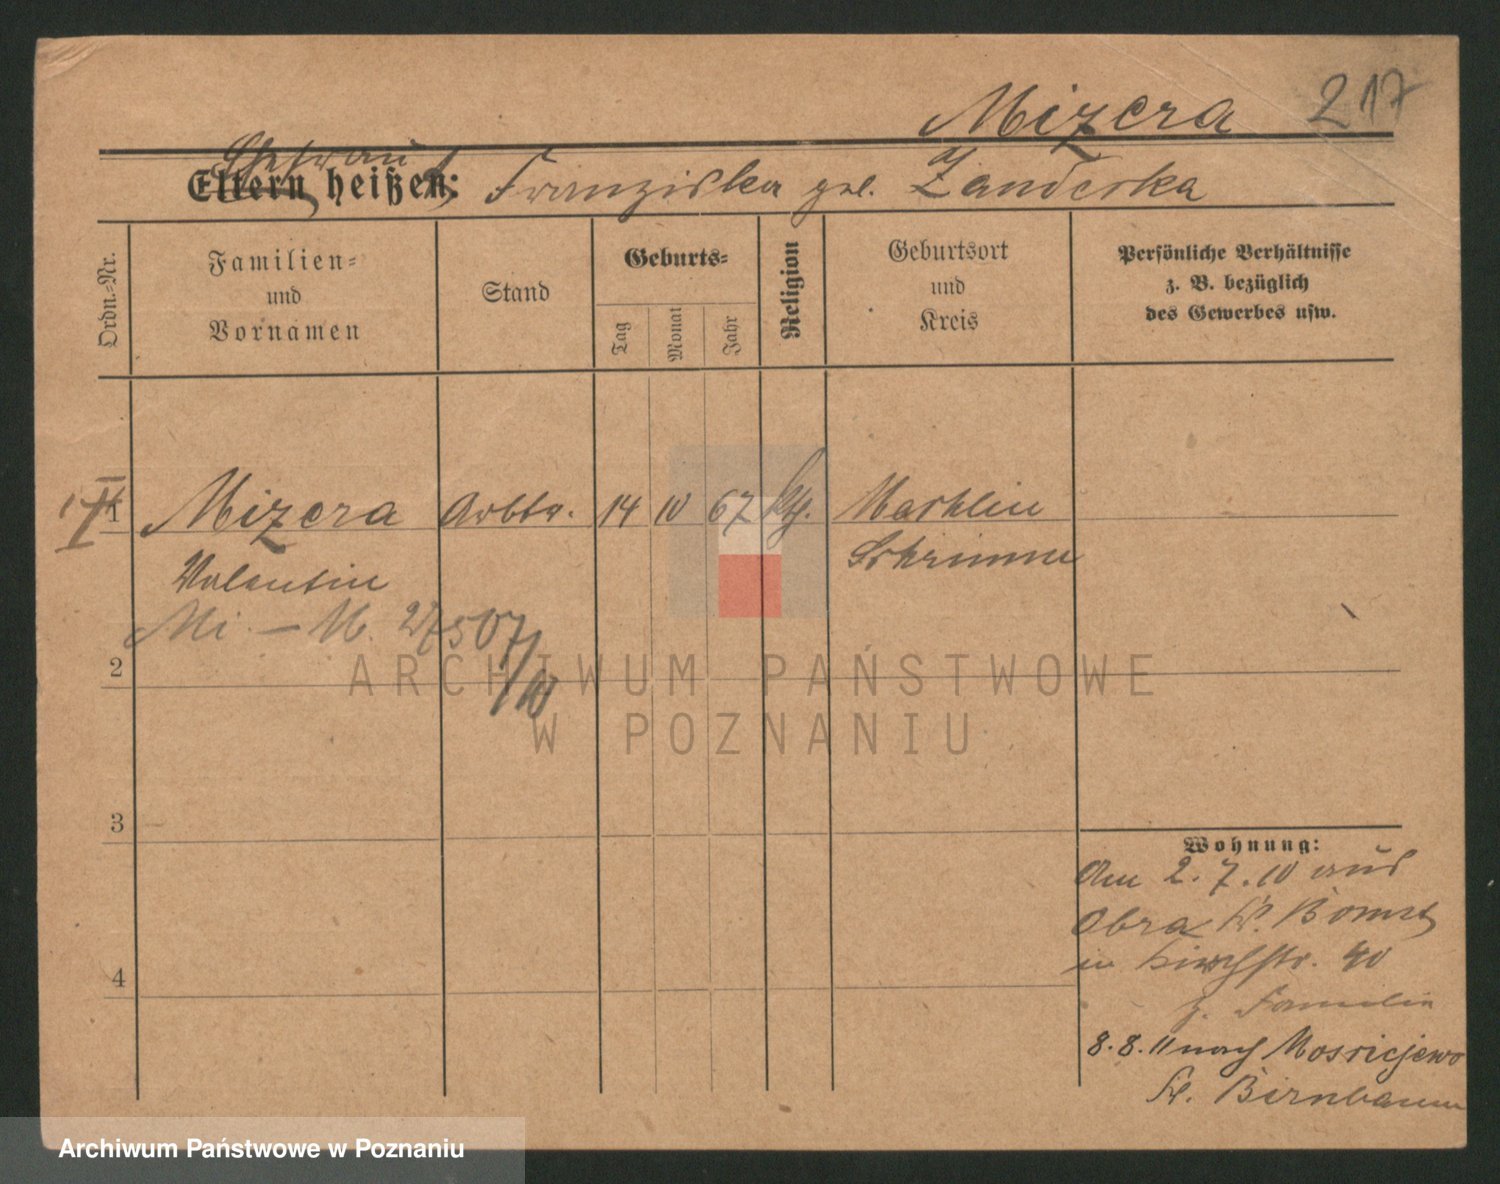 Mizera 217
Ehefrau
Eltern heißen: Franziska geb. Zanderka
Ordn.=Nr.
Familien=
und
Vornamen
Stand
Geburts=
Tag
Monat
Jahr
Religion
Geburtsort
und
Kreis
Persönliche Verhältnisse
z. B. bezüglich
des Gewerbes usw.
1 Mizera Arbtr. 14 10 67 kth. Mechlin
Valentin Schrimm
Mi. — M. 27507/10
2
3
4
Wohnung:
Am 2.7.10 aus
Obra Kr. Bomst
in Kirchstr. 40
z. Familie
8.8.11 nach Mosciejewo
Kr. Birnbaum
ARCHIWUM PAŃSTWOWE
W POZNANIU
Archiwum Państwowe w Poznaniu